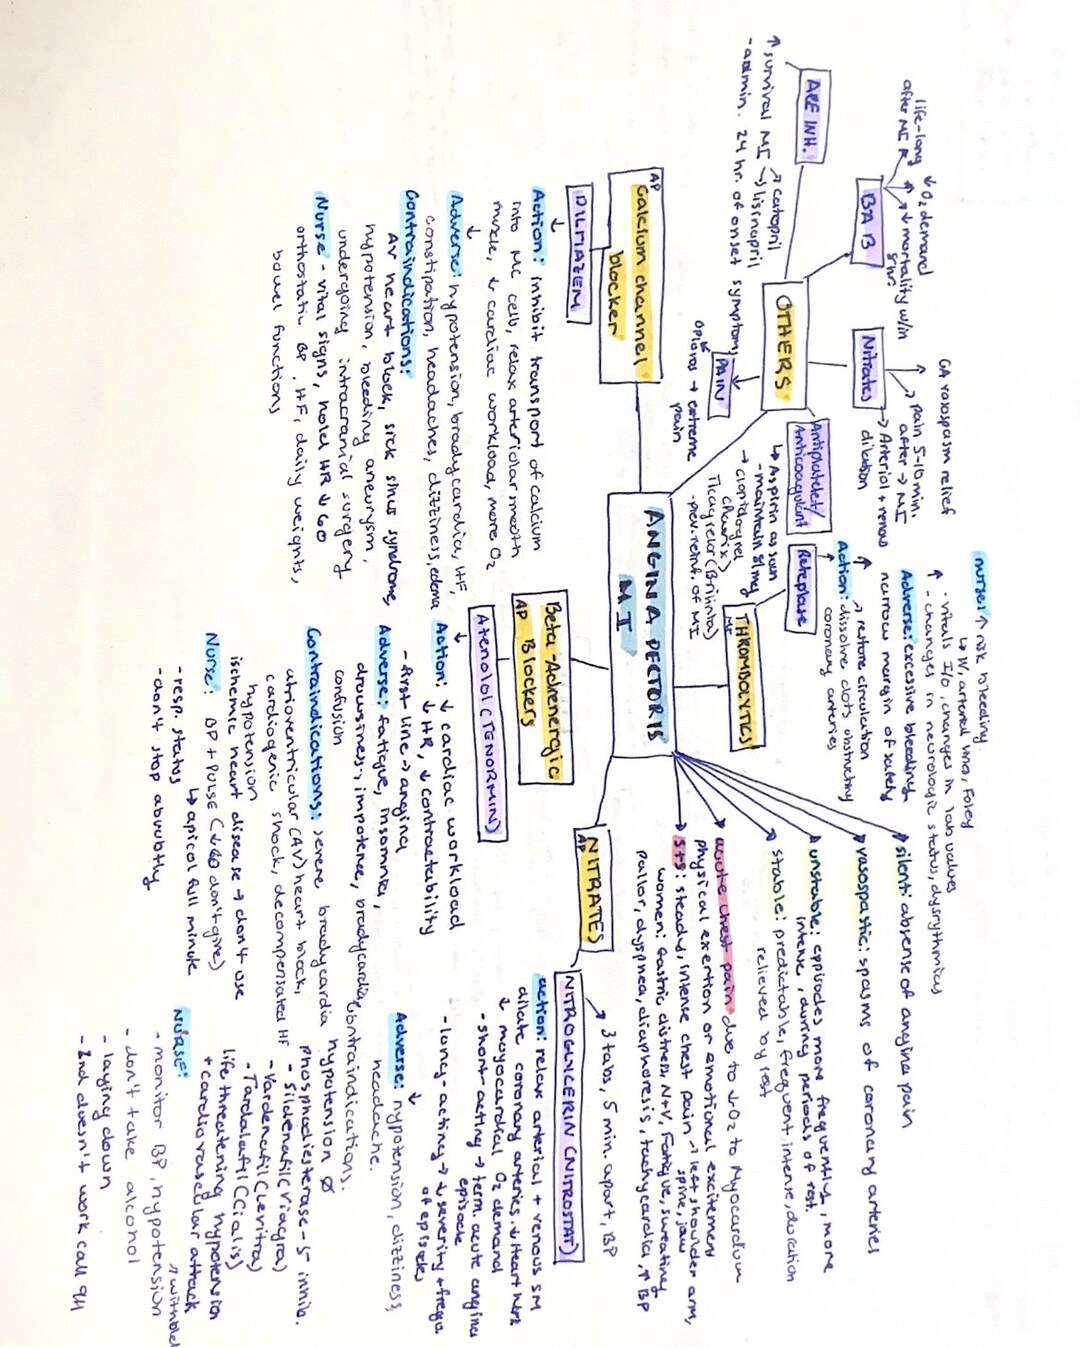 ANGINA PECTORIS
MI
silent: absense of angina pain
vasospastic: spasms of coronary arteries
unstable: eppisodes more frequently, more
intense, during periods of rest.
stable: predictable, frequent, intense, duration
relieved by rest
acute chest pain due to ↓O2 to Myocardium
physical exertion or emotional excitement
S+S: steady, intense chest pain → left shoulder arm,
spine, jaw
women: Gastric distress, N+V, Fatigue, sweating
pallor, dyspnea, diaphoresis, tachycardia, ↑ BP
NITRATES
AP
→ 3 tabs, 5 min. apart, BP
NITROGLYCERIN (NITROSTAT)
action: relax arterial + venous SM
dilate coronary arteries. ↓ Heart work
↓ moyocardial O2 demand
- short-acting → term. acute angina
episode
- long-acting → ↓ severity + freq
of episodes
Adverse: hypotension, dizziness,
headache.
Contraindications:
hypotension
phosphodiesterase-5 inhib.
- Sildenafil (Viagra)
- Vardenafil (Levitra)
- Tardalafil (Cialis)
life threatening hypotension
+ cardiovascular attack
NURSE:
- monitor BP, hypotension
- don't take alcohol
- laying down
- 2nd doesn't work call 911
Beta-Adrenergic
AP Blockers
Atenolol (TENORMIN)
Action: ↓ cardiac workload
↓ HR, ↓ contractability
- first line → angina
Adverse: fatigue, insomnia,
drowsiness, impotence, bradycardia,
confusion
Contraindications: severe bradycardia
atrioventricular (AV) heart block,
cardiogenic shock, decompensated HF
hypotension
ischemic heart disease → don't use
Nurse: BP + Pulse (↓60 don't give)
↳ apical full minute
- resp. status
- don't stop abrubtly
Calcium channel
blocker
AP
DILTIAZEM
Action: inhibit transport of calcium
into MC cells, relax arteriolar smooth
muscle, ↓ cardiac workload, more O2
Adverse: hypotension, bradycardia, HF,
constipation, headaches, dizziness, edema
Contraindications:
AV heart block, sick sinus syndrome,
hypotension, bleeding aneurysm,
undergoing intracranial surgery
Nurse - vital signs, hold HR ↓ 60
orthostatic BP, HF, daily weights,
bowel functions
OTHERS
ACE INH.
↑ survival MI → catopril
↳ lisinopril
- admin. 24 hr. of onset symptom
BAB
life-long
after MI
↓ O2 demand
↓ mortality w/in
Nitrates
CA vasospasm relief
→ pain 5-10 min.
after → MI
→ Arterial + venous
dilation
PAIN
opioids → extreme
pain
Antiplatelet/
Anticoagulant
↳ Aspirin as soon
- maintain 81mg
→ clopidogrel
Ticagrelor (Brilinta)
- prev. reinf. of MI
THROMBOLYTICS
MI
Reteplase
Action: dissolve clots obstructing
coronary arteries
→ restore circulation
narrow margin of safety
Adverse: excessive bleeding
- changes in neurologic status, dysrythmias
· vitals I/o, changes in lab values
↳ IV, arterial lines, Foley
nurse: ↑ risk bleeding